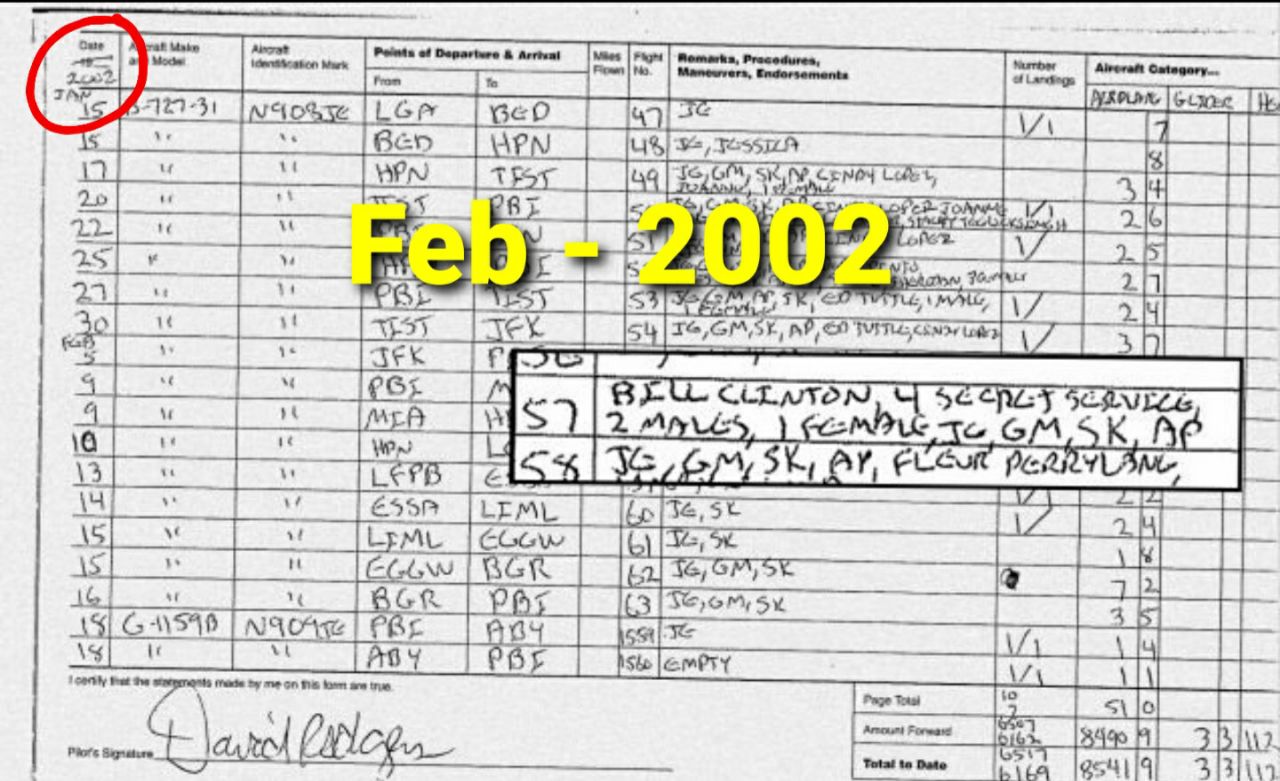 Date
19
2002
JAN
Aircraft Make and Model
Aircraft Identification Mark
Points of Departure & Arrival
From
To
Miles Flown
Flight No.
Remarks, Procedures, Maneuvers, Endorsements
Number of Landings
Aircraft Category...
AIRPLANE GLIDER HE
15 B-727-31 N908JE LGA BED 47 JE 1/1 7
15 " " BED HPN 48 JE, JESSICA 8
17 " " HPN TIST 49 JE, GM, SK, AP, CINDY LOPEZ,
JOANNE, 1 FEMALE 3 4
20 " " TIST PBI 1/1 2 6
22 " " LOPEZ 1/ 2 5
25 " " 2 7
27 " " PBI TIST 53 JE, GM, AP, SK, ED TUTTLE, 1 MALE,
1 FEMALE 1/ 2 4
30 " " TIST JFK 54 JE, GM, SK, AP, ED TUTTLE, CINDY LOPEZ 1/ 3 7
FEB
5 " " JFK
9 " " PBI
9 " " MIA
10 " " HPN
13 " " LFPB 2 2
14 " " ESSA LIML 60 JE, SK 1/ 2 4
15 " " LIML EGGW 61 JE, SK 1 8
15 " " EGGW BGR 62 JE, GM, SK 7 2
16 " " BGR PBI 63 JE, GM, SK 3 5
18 G-1159B N909JE PBI ABY 1559 JE 1/1 1 4
18 " " ABY PBI 1560 EMPTY 1/1 1 1
Feb - 2002
57 BILL CLINTON, 4 SECRET SERVICE,
2 MALES, 1 FEMALE, JE, GM, SK, AP
58 JE, GM, SK, AP, FLEUR PERRYLANG,
I certify that the statements made by me on this form are true.
Pilot's Signature David Rodgers
Page Total 10 2 51 0
Amount Forward 6507 6162 8490 9 3 3 112
Total to Date 6517 6169 8541 9 3 3 112